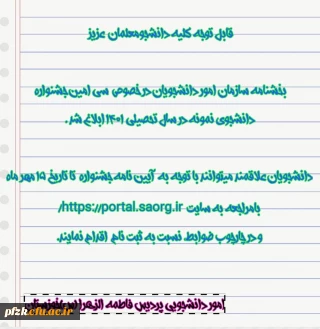 قابل توجه کلیه دانشجومعلمان عزیز
بخشنامه سازمان امور دانشجویان در خصوص سی امین جشنواره
دانشجوی نمونه در سال تحصیلی ۱۴۰۱ ابلاغ شد.
دانشجویان علاقمند میتوانند با توجه به آیین نامه جشنواره تا تاریخ ۱۵ مهر ماه
با مراجعه به سایت https://portal.saorg.ir/
و در چارچوب ضوابط نسبت به ثبت نام اقدام نمایند.
امور دانشجویی پردیس فاطمه الزهرا(س) خوزستان
pfzk.cfu.ac.ir